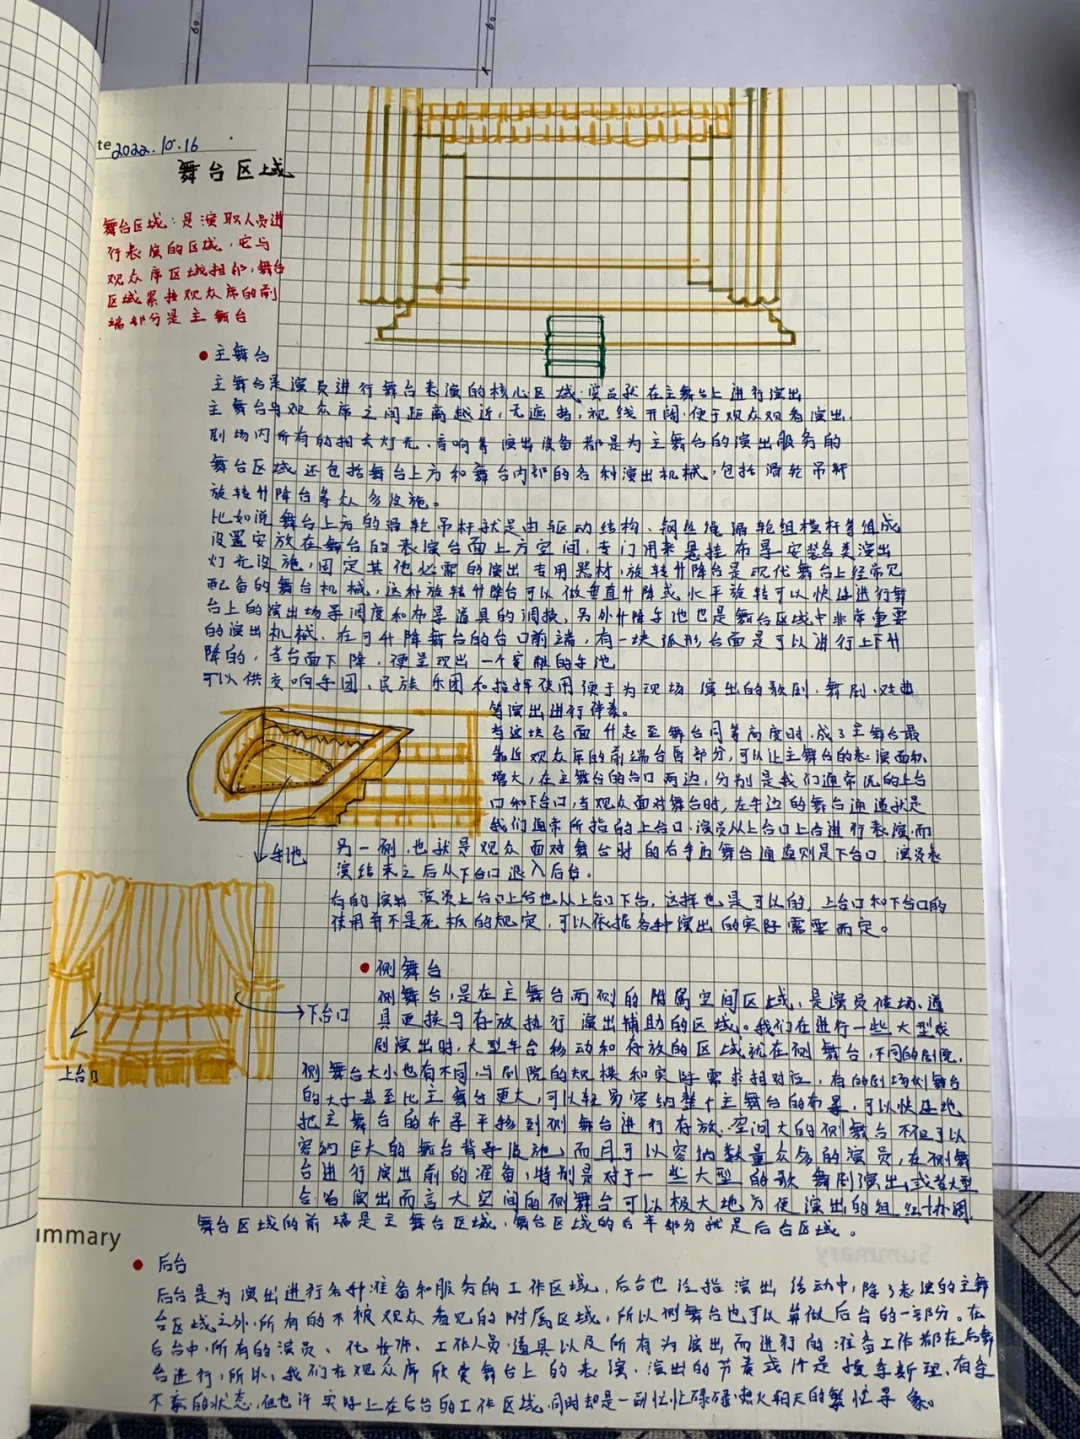 te 2022.10.16
舞台区域
舞台区域：是演职人员进
行表演的区域，它与
观众席区域相邻，舞台
区域紧接观众席的前
端部分是主舞台
主舞台
主舞台是演员进行舞台表演的核心区域：演员就在主舞台上进行演出
主舞台与观众席之间距离越近，无遮挡，视线开阔，便于观众观看演出，
剧场内所有的相关灯光、音响等演出设备都是为主舞台的演出服务的
舞台区域还包括舞台上方和舞台内部的各种演出机械，包括滑轮吊杆
旋转升降台等众多设施。
比如说舞台上方的滑轮吊杆就是由驱动结构、钢丝绳滑轮组横杆等组成
设置安放在舞台的表演台面上方空间，专门用来悬挂布景安装各类演出
灯光设施，固定其他必需的演出专用器材，旋转升降台是现代舞台上经常见
配备的舞台机械，这种旋转升降台可以做垂直升降或水平旋转可以快速进行舞
台上的演出场景调度和布景道具的调换，另外升降乐池也是舞台区域中非常重要
的演出机械，在可升降舞台的台口前端，有一块弧形台面是可以进行上下升
降的，当台面下降，便呈现出一个宽敞的乐池
可以供交响乐团、民族乐团和指挥使用便于为现场演出的歌剧、舞剧、戏曲
等演出进行伴奏。
当这块台面升起至舞台同等高度时，成了主舞台最
靠近观众席的前端台唇部分，可以让主舞台的表演面积
增大，在主舞台的台口两边，分别是我们通常说的上台
口和下台口，当观众面对舞台时，左手边的舞台通道就是
我们通常所指的上台口，演员从上台口上台进行表演，而
另一侧，也就是观众面对舞台时的右手边舞台通道则是下台口，演员表
演结束之后从下台口退入后台。
乐池
有的演出演员上台口上台也从上台口下台，这样也是可以的，上台口和下台口的
使用并不是死板的规定，可以依据各种演出的实际需要而定。
下台口
上台口
侧舞台
侧舞台，是在主舞台两侧的附属空间区域，是演员候场、道
具更换与存放执行演出辅助的区域。我们在进行一些大型戏
剧演出时，大型车台移动和存放的区域就在侧舞台，不同的剧院，
侧舞台大小也有不同，与剧院的规模和实际需求相对应，有的剧场侧舞台
的大于甚至比主舞台更大，可以轻易容纳整个主舞台的布景，可以快速地
把主舞台的布景平移到侧舞台进行存放，空间大的侧舞台不仅可以
容纳巨大的舞台背景设施，而且可以容纳数量众多的演员，在侧舞
台进行演出前的准备，特别是对于一些大型的歌舞剧演出，或者大型
台 演出而言大空间的侧舞台可以极大地方便演出的组织协调
舞台区域的前端是主舞台区域，舞台区域的后半部分就是后台区域。
ummary
后台
后台是为演出进行各种准备和服务的工作区域，后台也泛指演出活动中，除了表演的主舞
台区域之外，所有的不被观众看见的附属区域，所以侧舞台也可以算做后台的一部分。在
后台中，所有的演员、化妆师、工作人员、道具以及所有为演出而进行的准备工作都在后舞
台进行，所以，我们在观众席欣赏舞台上的表演，演出的节奏或许是 条 理，有条
不紊的状态，但也许实际上在后台的工作区域，同时却是一副忙忙碌碌热火朝天的繁忙景象。